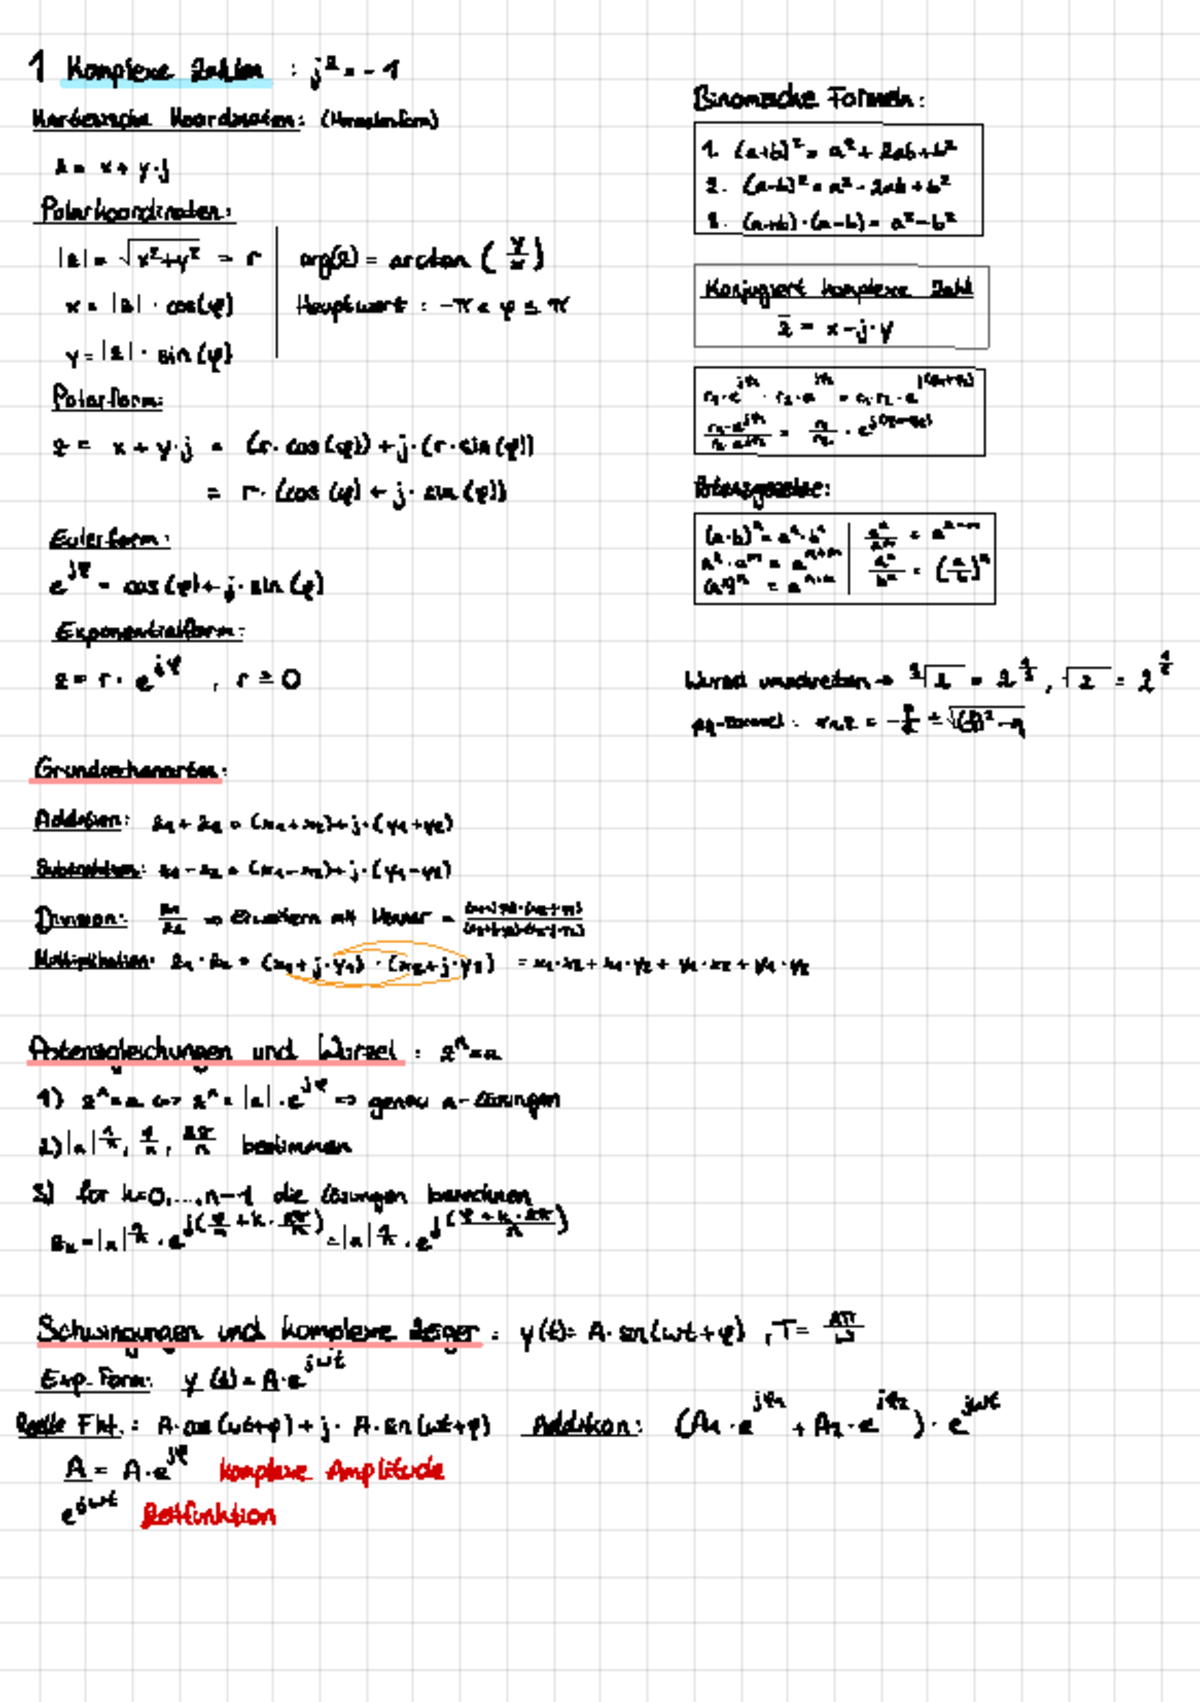 1 Komplexe Zahlen : j² = -1
Kartesische Koordinaten: (Normalform)
z = x + y·j
Polarkoordinaten:
|z| = √(x²+y²) = r
arg(z) = arctan (y/x)
x = |z| · cos(φ)
Hauptwert : -π < φ ≤ π
y = |z| · sin(φ)
Polarform:
z = x + y·j = (r·cos(φ)) + j·(r·sin(φ))
= r·(cos(φ) + j·sin(φ))
Eulerform:
e^(jφ) = cos(φ) + j·sin(φ)
Exponentialform:
z = r·e^(jφ) , r ≥ 0
Binomische Formeln:
1. (a+b)² = a² + 2ab + b²
2. (a-b)² = a² - 2ab + b²
3. (a+b)·(a-b) = a² - b²
Konjugiert komplexe Zahl
z̄ = x - j·y
Potenzgesetze:
(a·b)ⁿ = aⁿ·bⁿ
aⁿ·aᵐ = aⁿ⁺ᵐ
aⁿ/aᵐ = aⁿ⁻ᵐ
aⁿ/bⁿ = (a/b)ⁿ
Wurzel umschreiben →
pq-Formel: x₁,₂ = -p/2 ± √((p/2)² - q)
Grundrechenarten:
Addition: z₁ + z₂ = (x₁+x₂) + j·(y₁+y₂)
Subtraktion: z₁ - z₂ = (x₁-x₂) + j·(y₁-y₂)
Division: z₁/z₂ ⇒ Erweitern mit Nenner =
Multiplikation: z₁·z₂ = (x₁+j·y₁)·(x₂+j·y₂) = x₁·x₂ + x₁·y₂ + y₁·x₂ + y₁·y₂
Potenzgleichungen und Wurzel : zⁿ = a
1) zⁿ = a ⇔ zⁿ = |a|·e^(jφ) ⇒ genau n-Lösungen
2) |a|^(1/n), φ/n, 2π/n bestimmen
3) for k=0,...,n-1 die Lösungen berechnen
z_k = |a|^(1/n) · e^(j(φ/n + k·2π/n)) = |a|^(1/n) · e^(j((φ+k·2π)/n))
Schwingungen und komplexe Zeiger : y(t) = A·sin(ωt+φ) , T = 2π/ω
Exp. Form: y(t) = A·e^(jωt)
Reelle Fkt.: A·cos(ωt+φ) + j·A·sin(ωt+φ)
Addition: (A₁·e^(jφ₁) + A₂·e^(jφ₂))·e^(jωt)
A = A·e^(jφ) Komplexe Amplitude
e^(jωt) Zeitfunktion